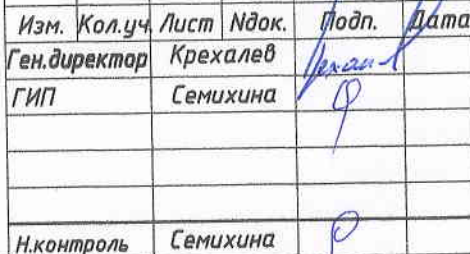 Изм. Кол.уч. Лист Nдок. Подп. Дата
Ген.директор Крехалев
ГИП Семихина
Н.контроль Семихина